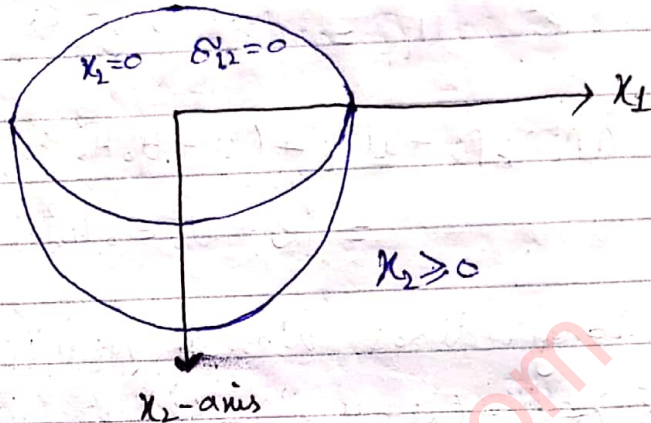 x₂=0 σ₁₂=0
x₁
x₂≥0
x₂-axis
om